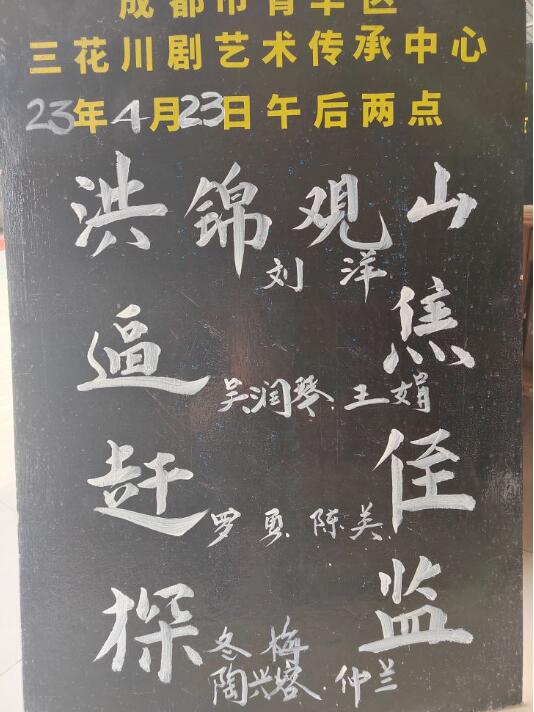 成都市青羊区
三花川剧艺术传承中心
23年4月23日午后两点
洪锦观山
刘 洋
逼 焦
吴润琴 王娟
赶 侄
罗勇 陈美
探 监
冬梅
陶兴蓉 仲兰